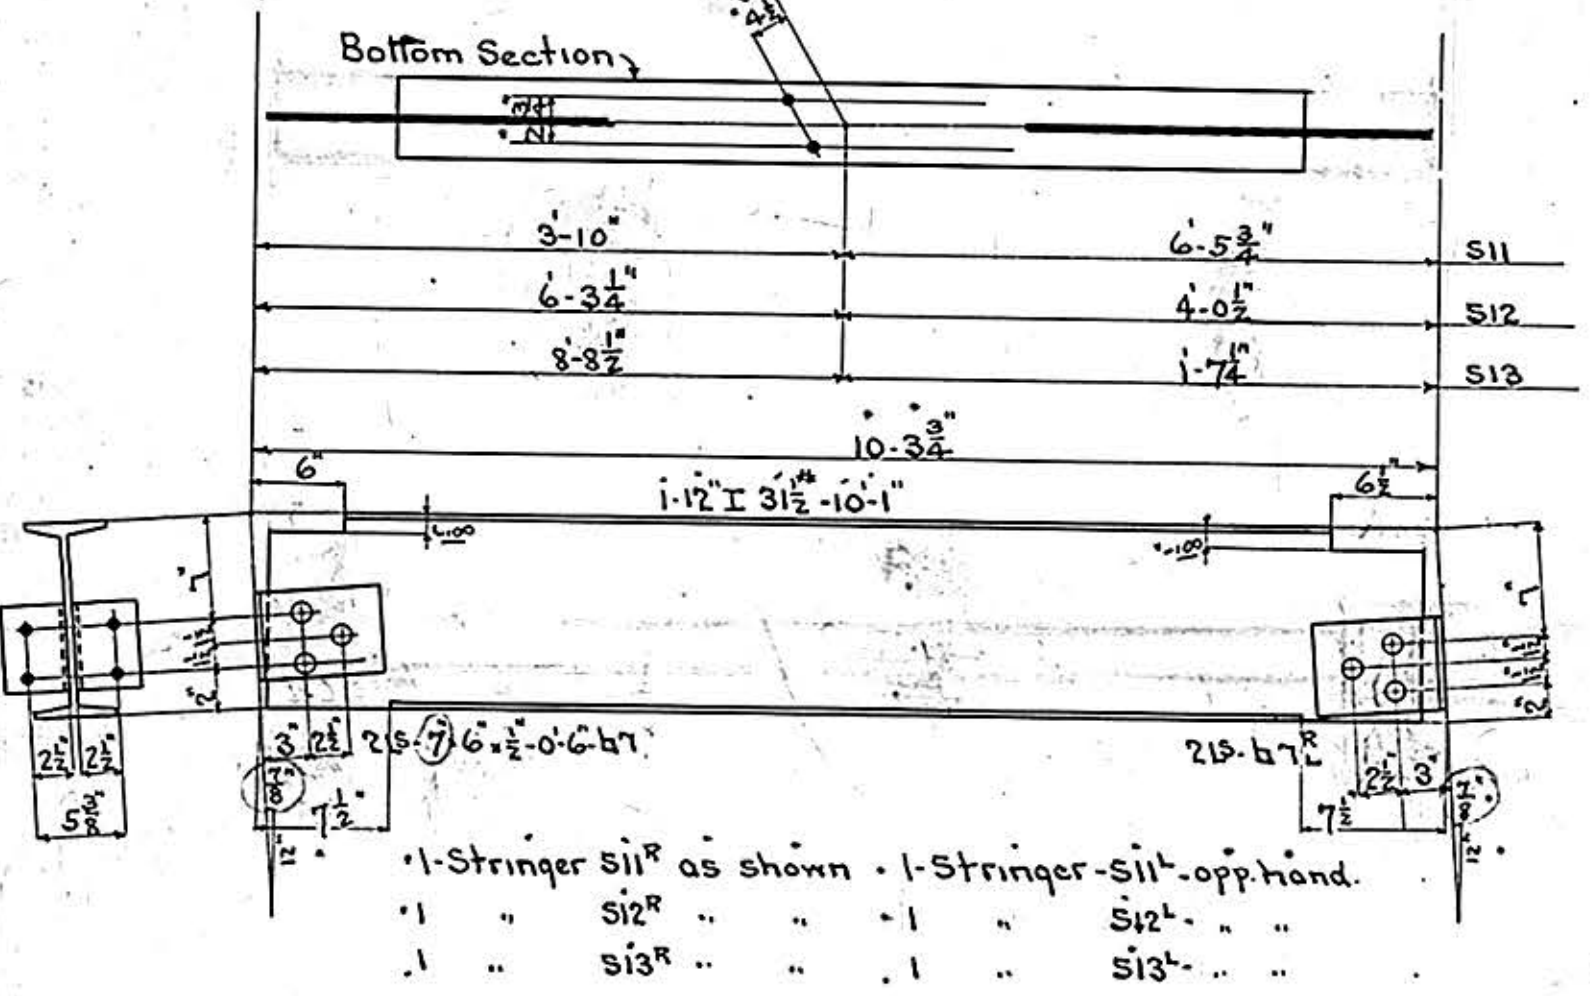 4½"
Bottom Section
2¾"
3'-10" 6'-5¾" S11
6'-3¼" 4'-0½" S12
8'-8½" 1'-7¼" S13
10-3¾"
6" 1-12" I 31½# -10'-1" 6½"
7" 7"
1½" 1½" 1½" 1½"
2" 2"
3" 2½" 2Ls-7"-6"x½"-0'-6"-b7 2Ls-b7 R L 2½" 3"
2½" 2½" 7/8" 7/8"
5⅜" 7½" 7½"
12" 12"
1-Stringer S11ᴿ as shown . 1-Stringer-S11ᴸ-opp.hand.
1 " S12ᴿ " " 1 " S12ᴸ- " "
1 " S13ᴿ " " 1 " S13ᴸ- " "